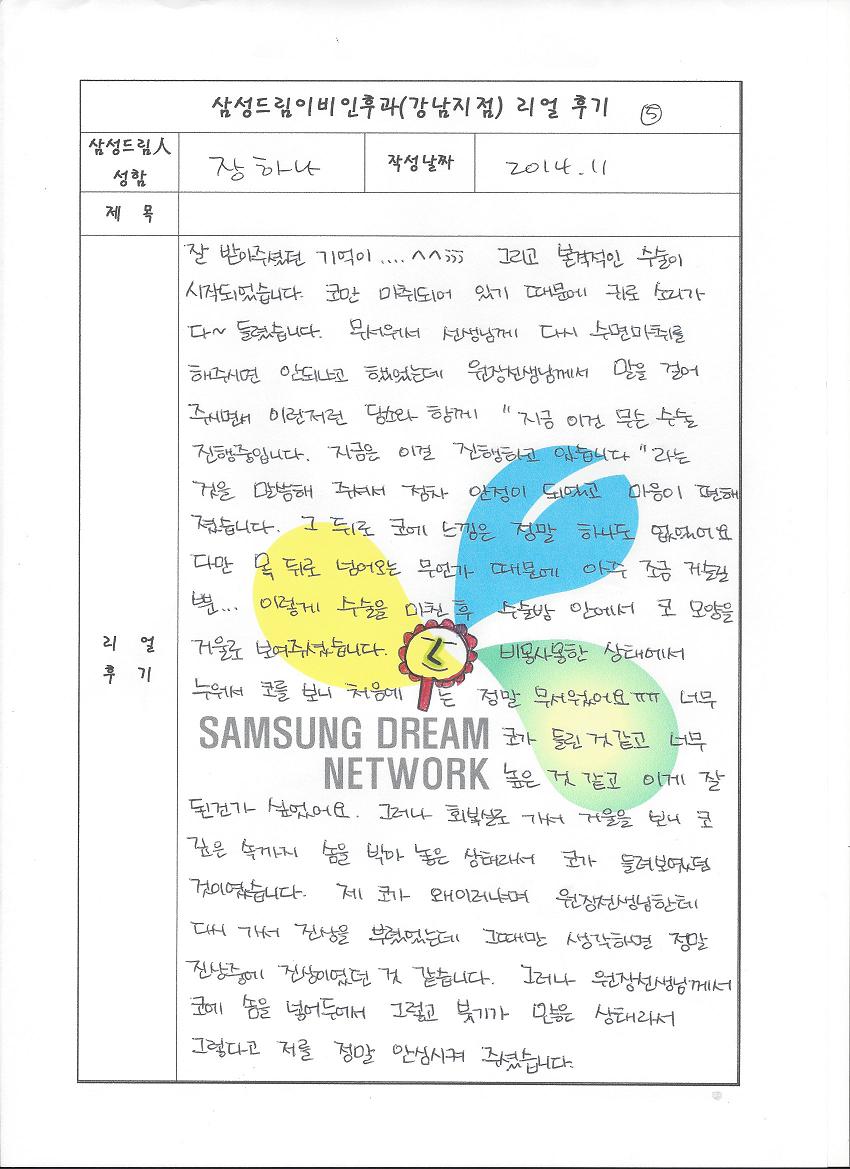 삼성드림이비인후과(강남지점) 리얼 후기 ⑤
삼성드림人 성함
장하나
작성날짜
2014.11
제 목
리 얼 후 기
잘 받아주셨던 기억이.... ^^;;; 그리고 본격적인 수술이
시작되었습니다. 코만 마취되어 있기 때문에 귀로 소리가
다~ 들렸습니다. 무서워서 선생님께 다시 수면마취를
해주시면 안되냐고 했었는데 원장선생님께서 말을 걸어
주시면서 이런저런 담소와 함께 "지금 이건 무슨 수술
진행중입니다. 지금은 이걸 진행하고 있습니다"라는
것을 말씀해 주셔서 점차 안정이 되었고 마음이 편해
졌습니다. 그 뒤로 코에 느낌은 정말 하나도 없었어요
다만 목 뒤로 넘어오는 무언가 때문에 아주 조금 거슬릴
뿐... 이렇게 수술을 마친 후 수술방 안에서 코 모양을
거울로 보여주셨습니다. 비몽사몽한 상태에서
누워서 코를 보니 처음에는 정말 무서웠어요ㅠㅠ 너무
SAMSUNG DREAM 코가 들린 것 같고 너무
NETWORK 높은 것 같고 이게 잘
된건가 싶었어요. 그러나 회복실로 가서 거울을 보니 코
깊은 속까지 솜을 박아 놓은 상태라서 코가 들려보였던
것이였습니다. 제 코가 왜이러냐며 원장선생님한테
다시 가서 진상을 부렸었는데 그때만 생각하면 정말
진상중에 진상이였던 것 같습니다. 그러나 원장선생님께서
코에 솜을 넣어두어서 그렇고 붓기가 많은 상태라서
그렇다고 저를 정말 안심시켜 주셨습니다.